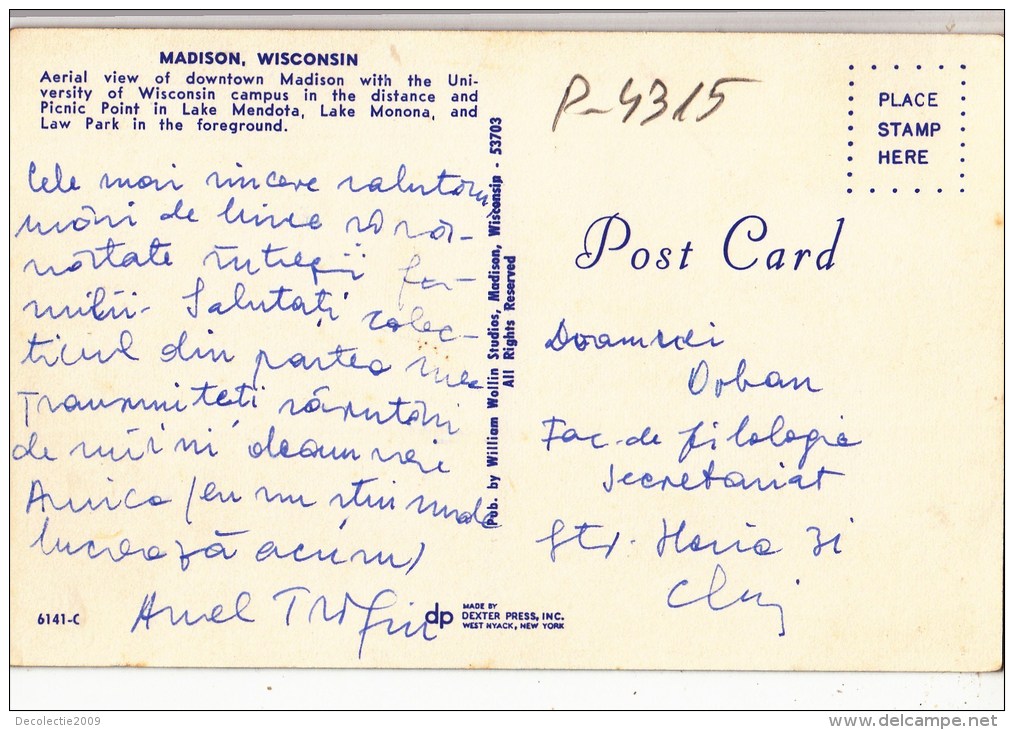 MADISON, WISCONSIN
Aerial view of downtown Madison with the Uni-
versity of Wisconsin campus in the distance and
Picnic Point in Lake Mendota, Lake Monona, and
Law Park in the foreground.
Cele mai sincere salutări
urări de bine și să-
nătate întregii fa-
milii. Salutați colec-
tivul din partea mea
Transmiteți sărutări
de mîini doamnei
Anica (eu nu știu unde
lucrează acum)
Aurel
6141-C
dp
MADE BY
DEXTER PRESS, INC.
WEST NYACK, NEW YORK
Pub. by William Wollin Studios, Madison, Wisconsin - 53703
All Rights Reserved
P-4315
PLACE
STAMP
HERE
Post Card
Doamnei
Orban
Fac. de filologie
Secretariat
Str. Horia 31
Cluj
Decolectie2009
www.delcampe.net